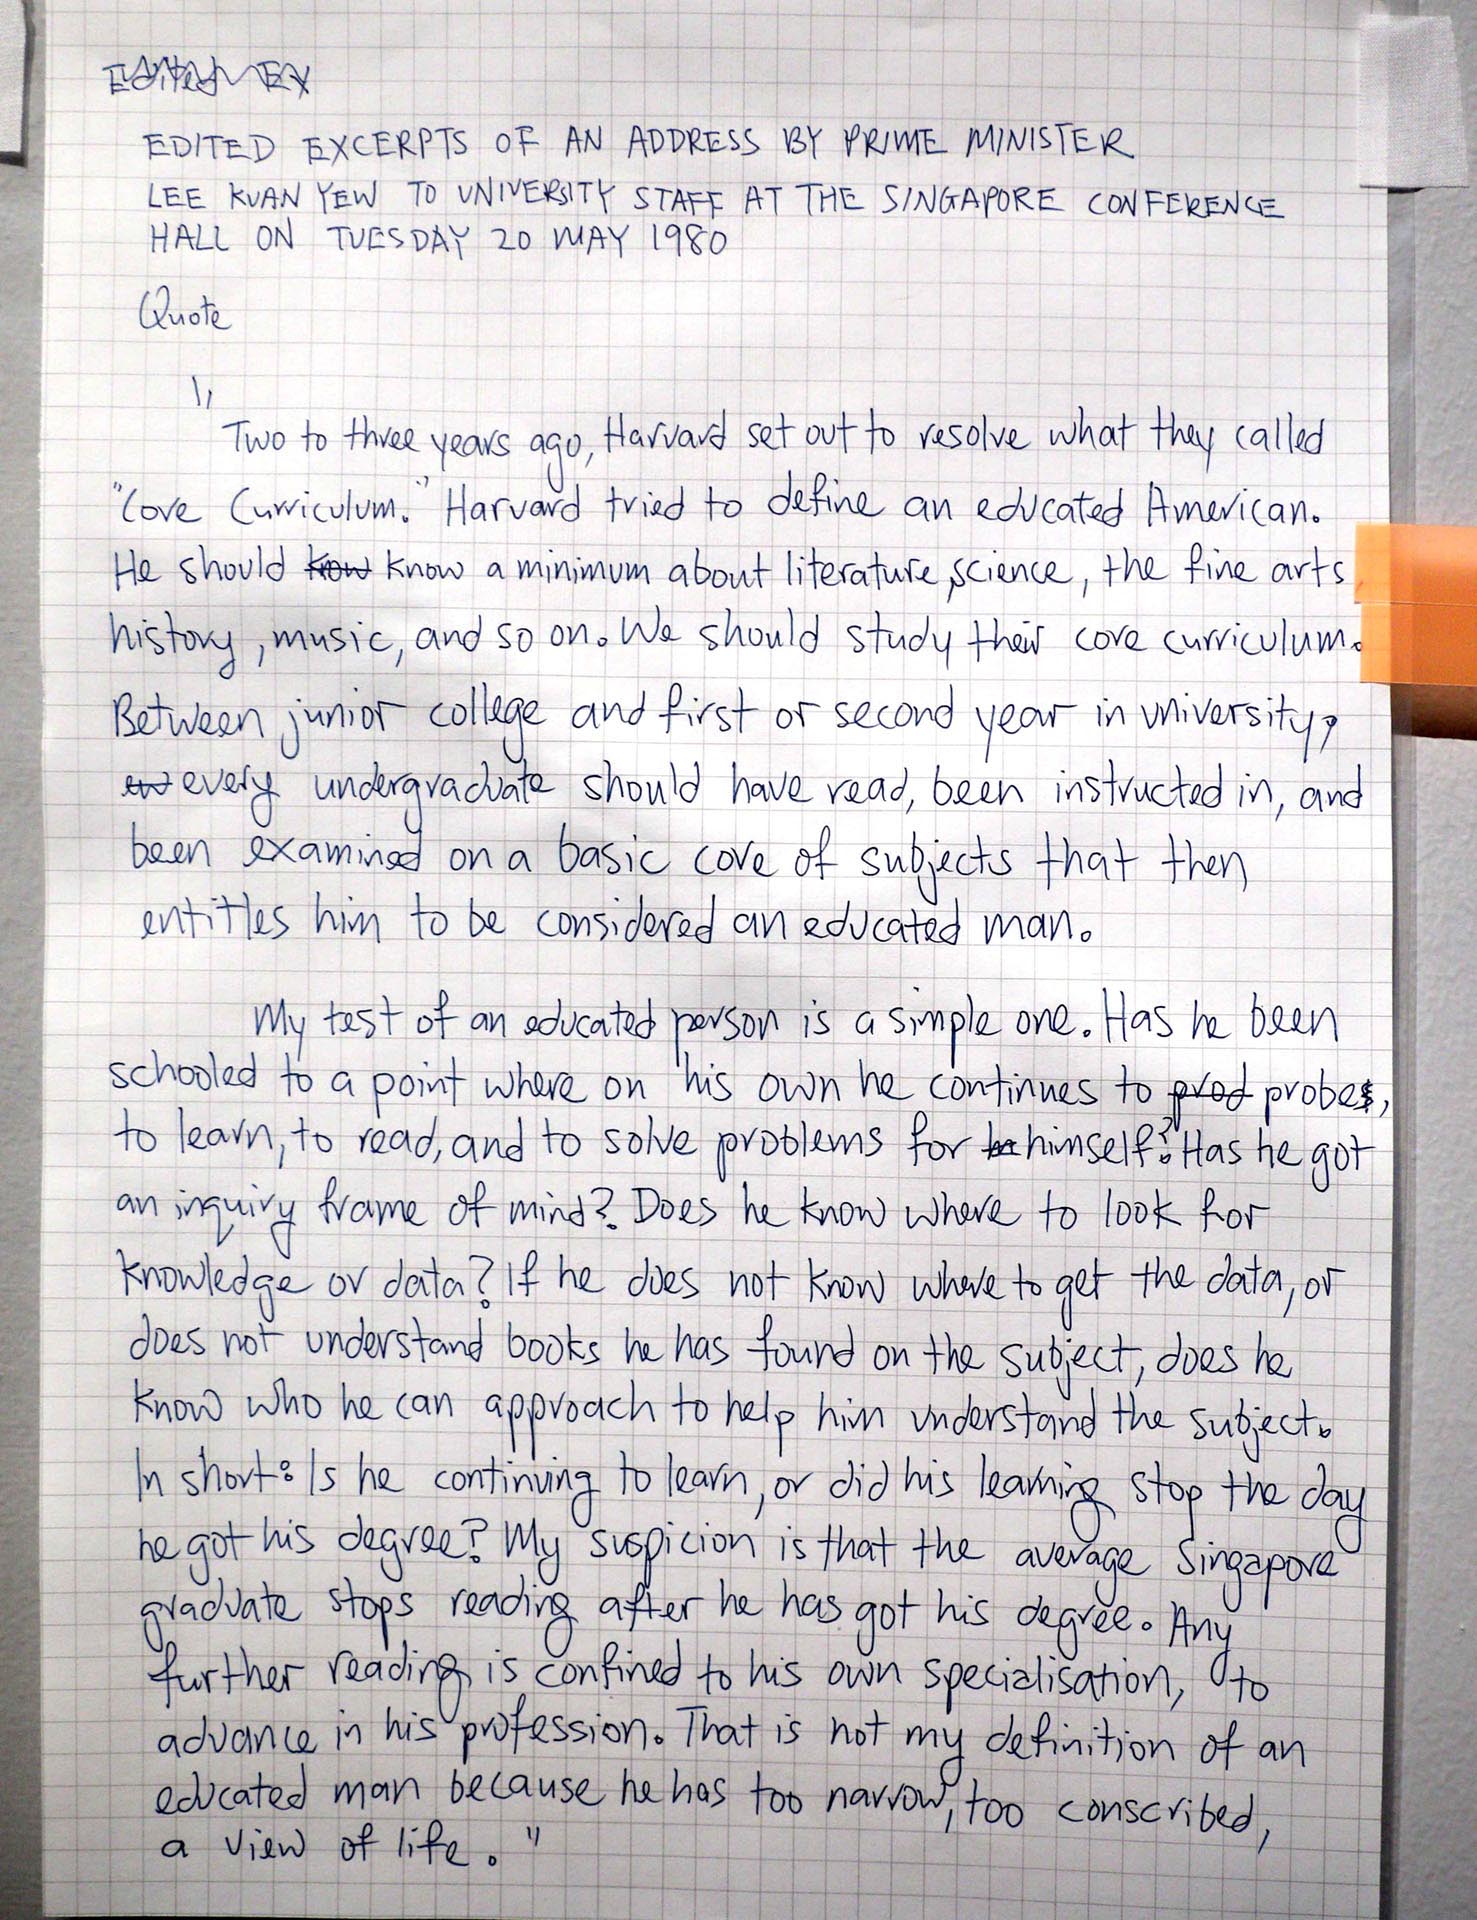 Edited EX
EDITED EXCERPTS OF AN ADDRESS BY PRIME MINISTER
LEE KUAN YEW TO UNIVERSITY STAFF AT THE SINGAPORE CONFERENCE
HALL ON TUESDAY 20 MAY 1980
Quote
"
Two to three years ago, Harvard set out to resolve what they called
"Core Curriculum." Harvard tried to define an educated American.
He should know know a minimum about literature, science, the fine arts
history, music, and so on. We should study their core curriculum.
Between junior college and first or second year in university,
every undergraduate should have read, been instructed in, and
been examined on a basic core of subjects that then
entitles him to be considered an educated man.
My test of an educated person is a simple one. Has he been
schooled to a point where on his own he continues to prod probe,
to learn, to read, and to solve problems for himself? Has he got
an inquiry frame of mind? Does he know where to look for
knowledge or data? If he does not know where to get the data, or
does not understand books he has found on the subject, does he
know who he can approach to help him understand the subject.
In short: Is he continuing to learn, or did his learning stop the day
he got his degree? My suspicion is that the average Singapore
graduate stops reading after he has got his degree. Any
further reading is confined to his own specialisation, to
advance in his profession. That is not my definition of an
educated man because he has too narrow, too conscribed,
a view of life."